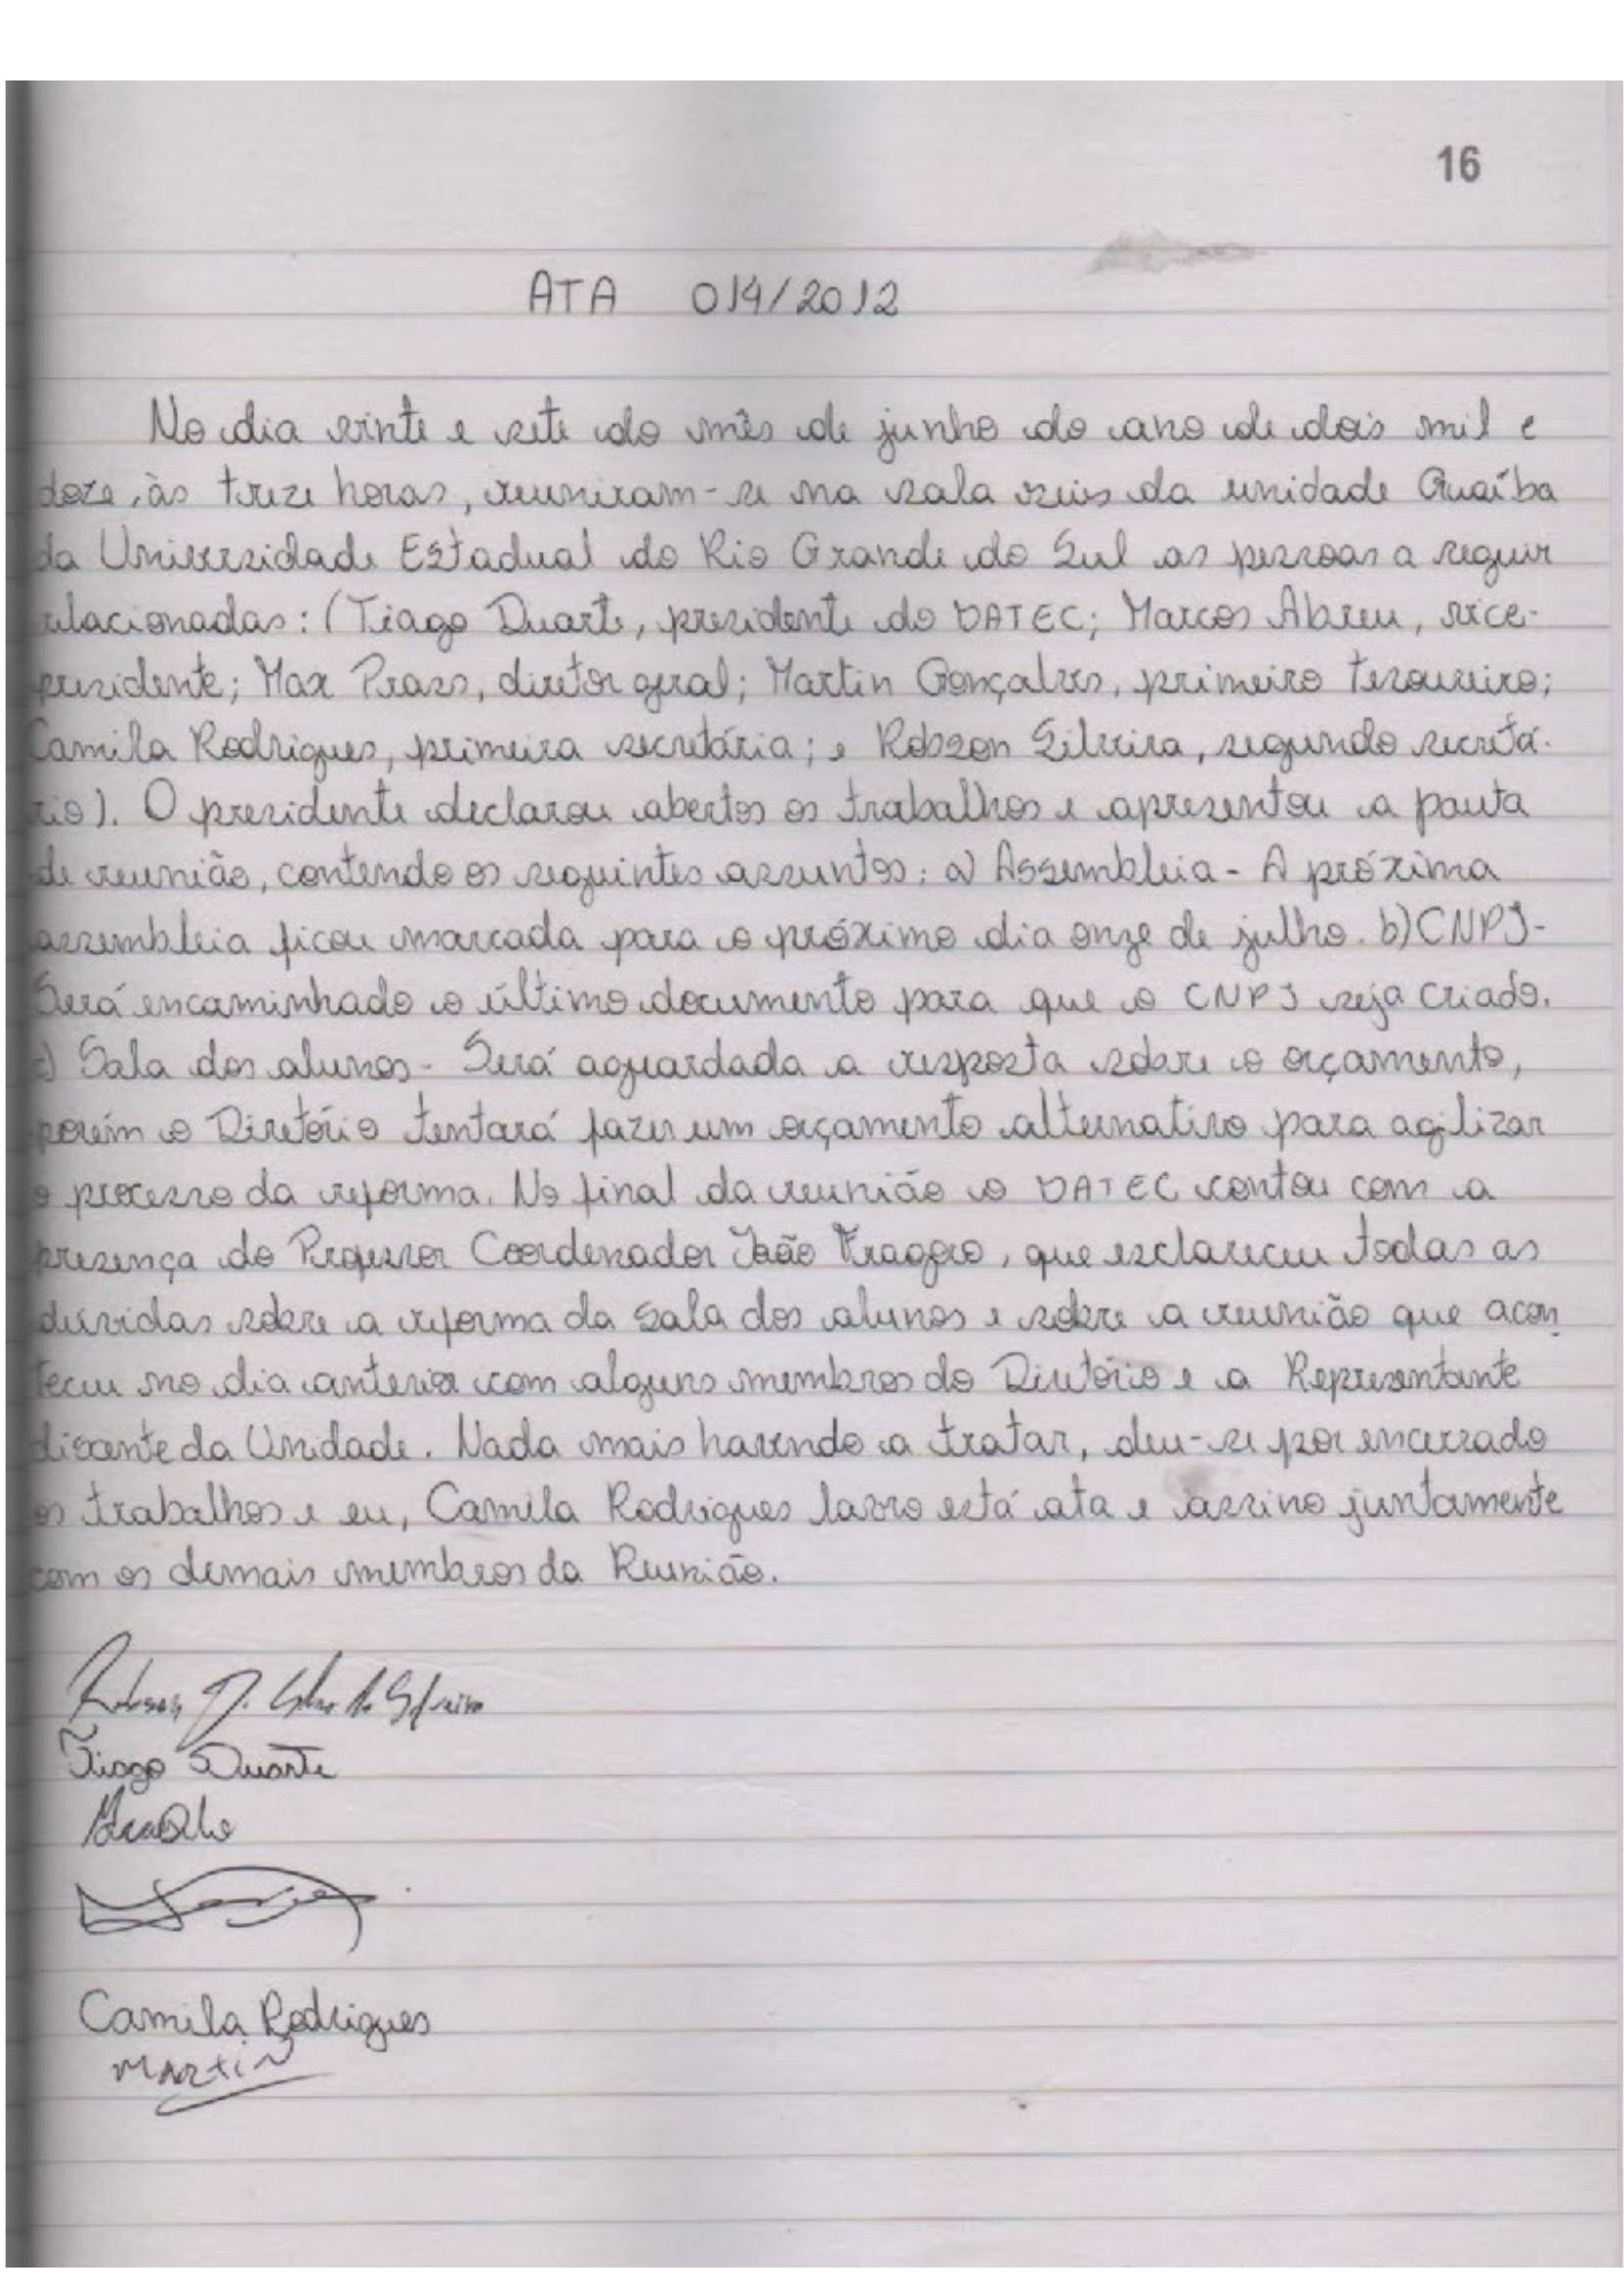 16
ATA 014/2012
No dia vinte e sete do mês de junho do ano de dois mil e
doze, às treze horas, reuniram-se na sala seis da unidade Guaíba
da Universidade Estadual do Rio Grande do Sul as pessoas a seguir
relacionadas: (Tiago Duarte, presidente do DATEC; Marcos Abreu, vice-
presidente; Max Prass, diretor geral; Martin Gonçalves, primeiro tesoureiro;
Camila Rodrigues, primeira secretária; e Robson Silveira, segundo secretá-
rio). O presidente declarou abertos os trabalhos e apresentou a pauta
de reunião, contendo os seguintes assuntos: a) Assembleia - A próxima
assembleia ficou marcada para o próximo dia onze de julho. b) CNPJ-
Será encaminhado o último documento para que o CNPJ seja criado.
c) Sala dos alunos - Será aguardada a resposta sobre o orçamento,
porém o Diretório tentará fazer um orçamento alternativo para agilizar
o processo da reforma. No final da reunião o DATEC contou com a
presença do Professor Coordenador João Fragoso, que esclareceu todas as
dúvidas sobre a reforma da sala dos alunos e sobre a reunião que acon
teceu no dia anterior com alguns membros do Diretório e a Representante
discente da Unidade. Nada mais havendo a tratar, deu-se por encerrado
os trabalhos e eu, Camila Rodrigues lavro está ata e assino juntamente
com os demais membros da Reunião.
Robson
Tiago Duarte
Camila Rodrigues
Martin